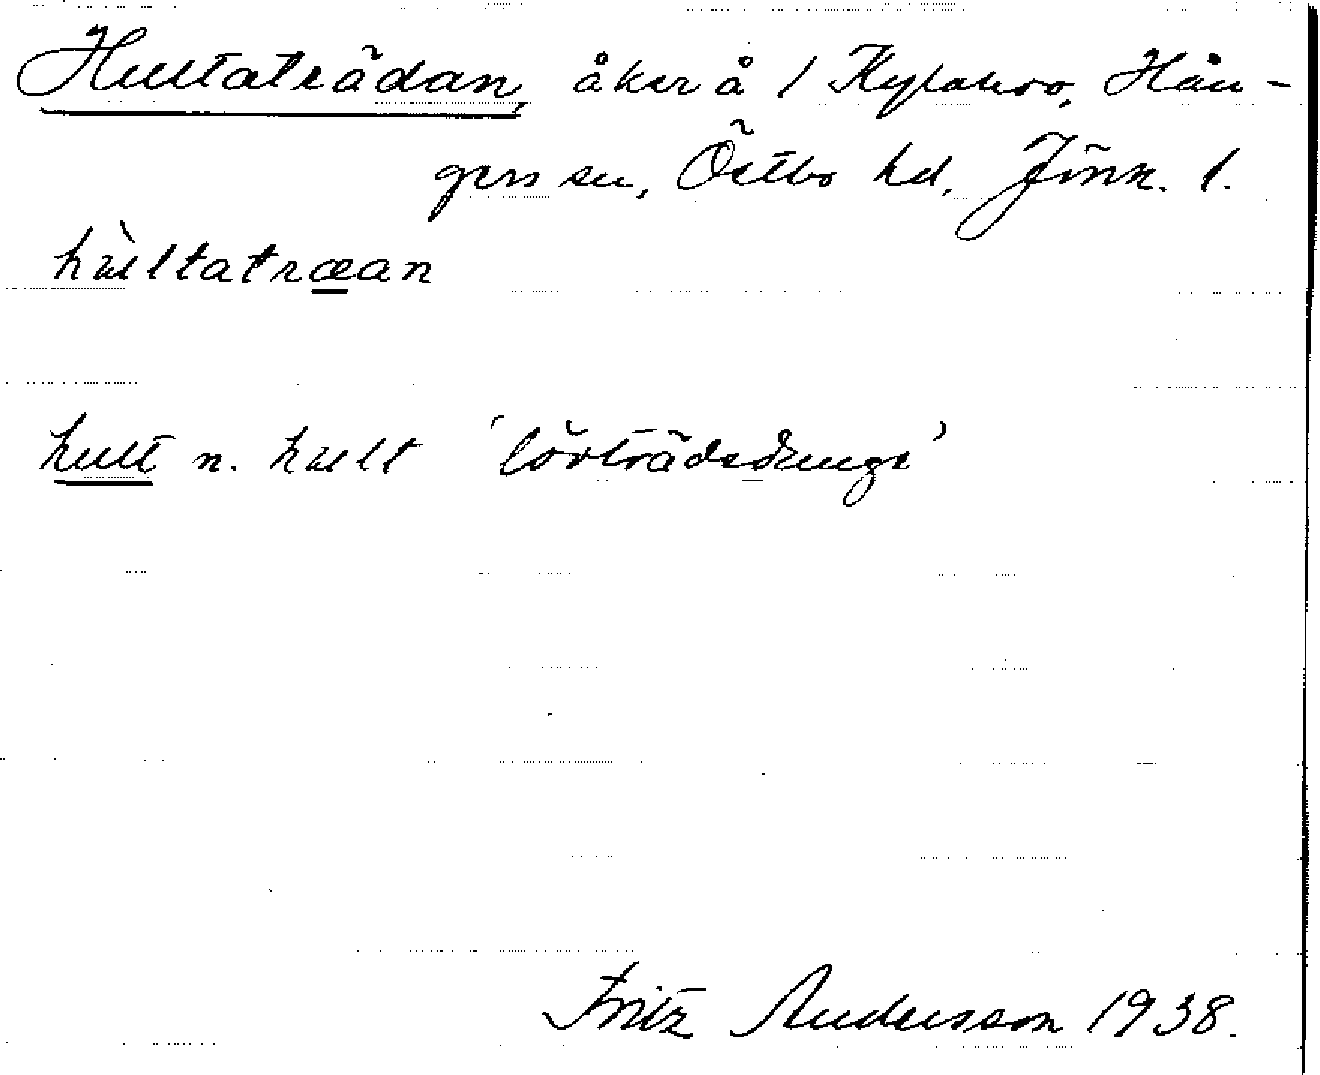 Hultaträdan, åker å 1 Kylahov, Hån-
gers sn, Östbo hd, Jönk. l.
hùltatræan
hult n. hult 'lövträdsdunge'
Fritz Andersson 1938.